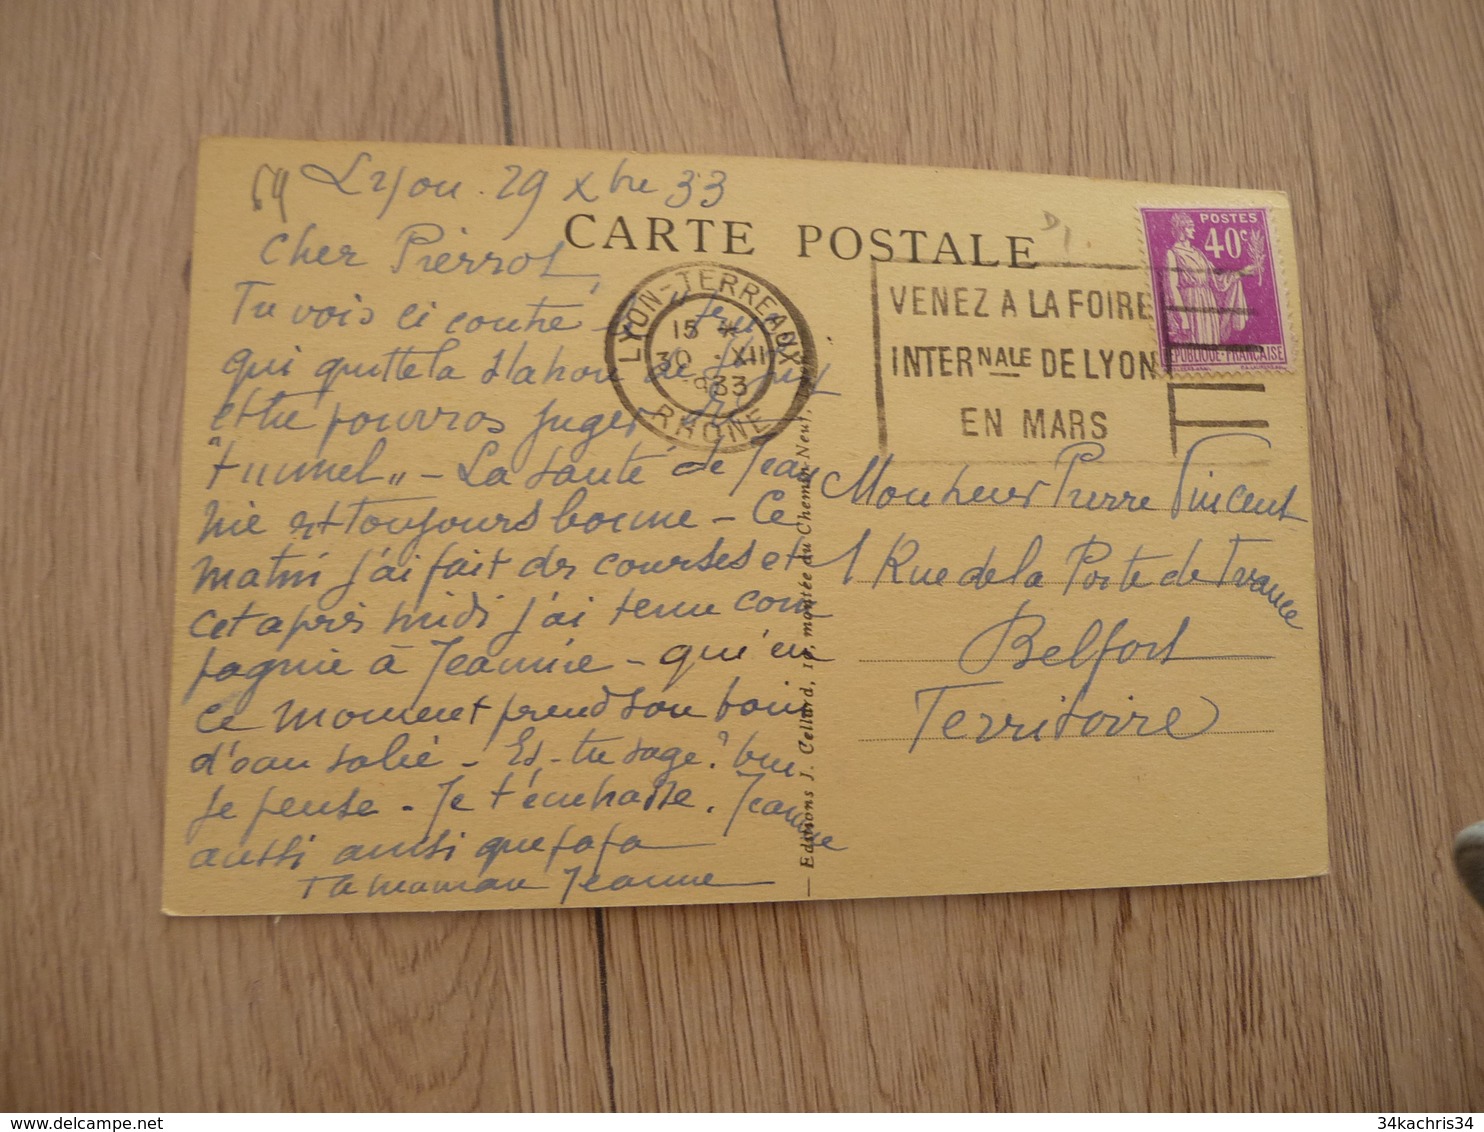 Lyon. 29 Xbre 33
CARTE POSTALE
Cher Pierrot,
Tu vois ci contre le
qui quitte la station de St Just
et tu pourras juger du
"tunnel" - La santé de Jean
nie est toujours bonne - Ce
matin j'ai fait des courses et
cet après midi j'ai tenu com
pagnie à Jeannie - qui en
ce moment prend son bain
d'eau salée - Es-tu sage? oui
je pense - Je t'embrasse. Jeannie
aussi ainsi que papa
Ta maman Jeanne
LYON-TERREAUX
15
30 XII
33
RHONE
VENEZ A LA FOIRE
INTERNALE DE LYON
EN MARS
POSTES
40c
REPUBLIQUE-FRANÇAISE
Monsieur Pierre Vincent
1 Rue de la Porte de France
Belfort
Territoire
— Editions J. Cellard, 19, montée du Chemin-Neuf,
34kachris34
34kachris34